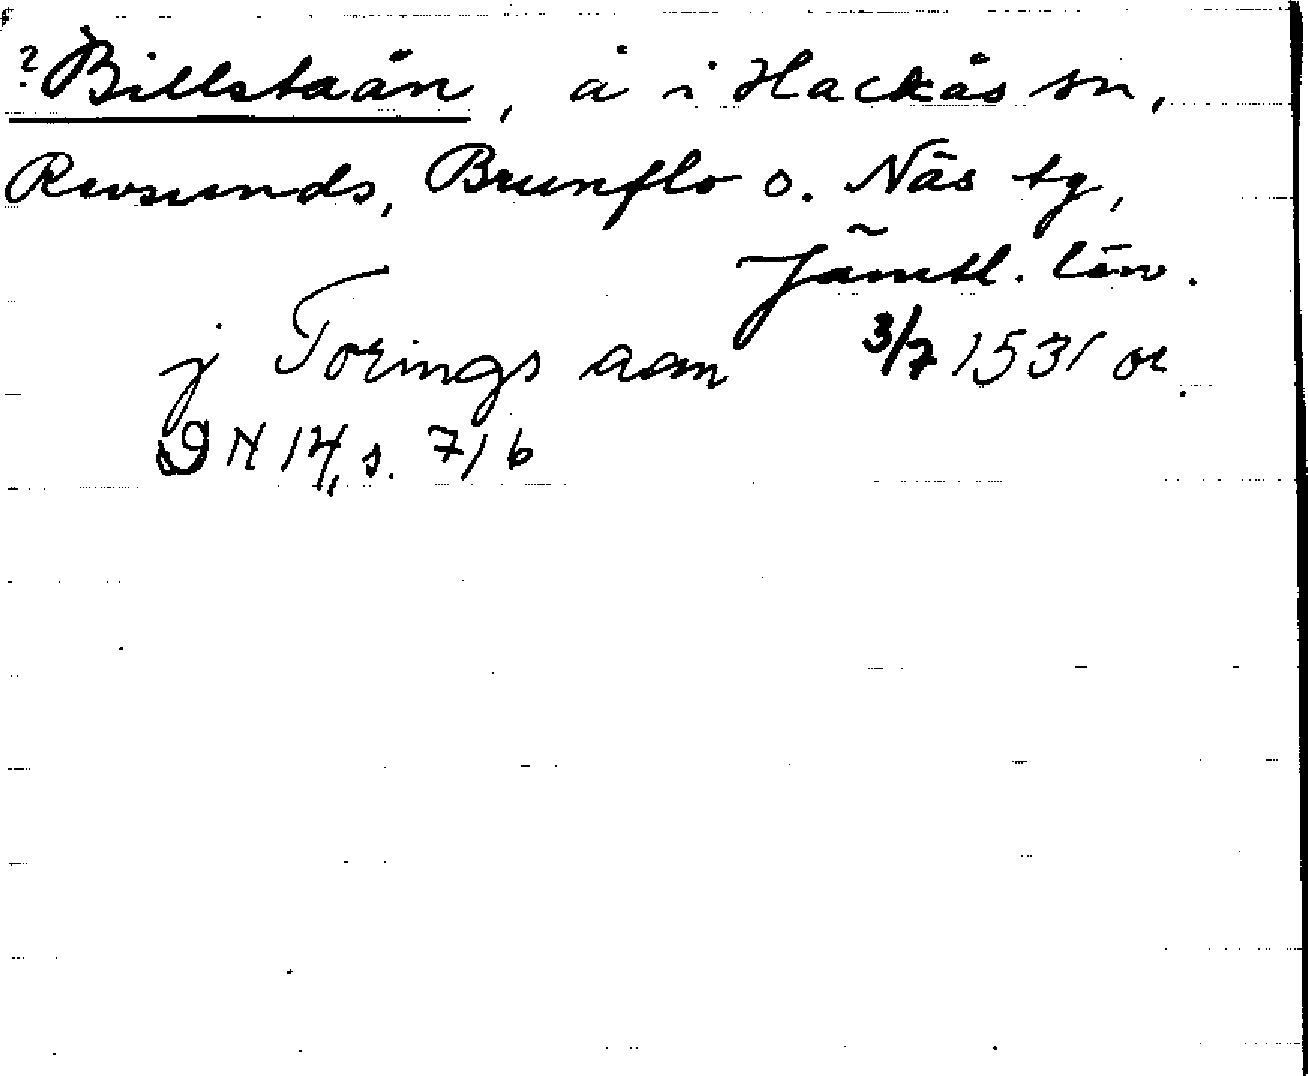 ? Billstaån, å i Hackås sn,
Revsunds, Brunflo o. Näs tg,
Jämtl. län.
j Torings aam 3/7 1531 or.
DN 14, s. 716